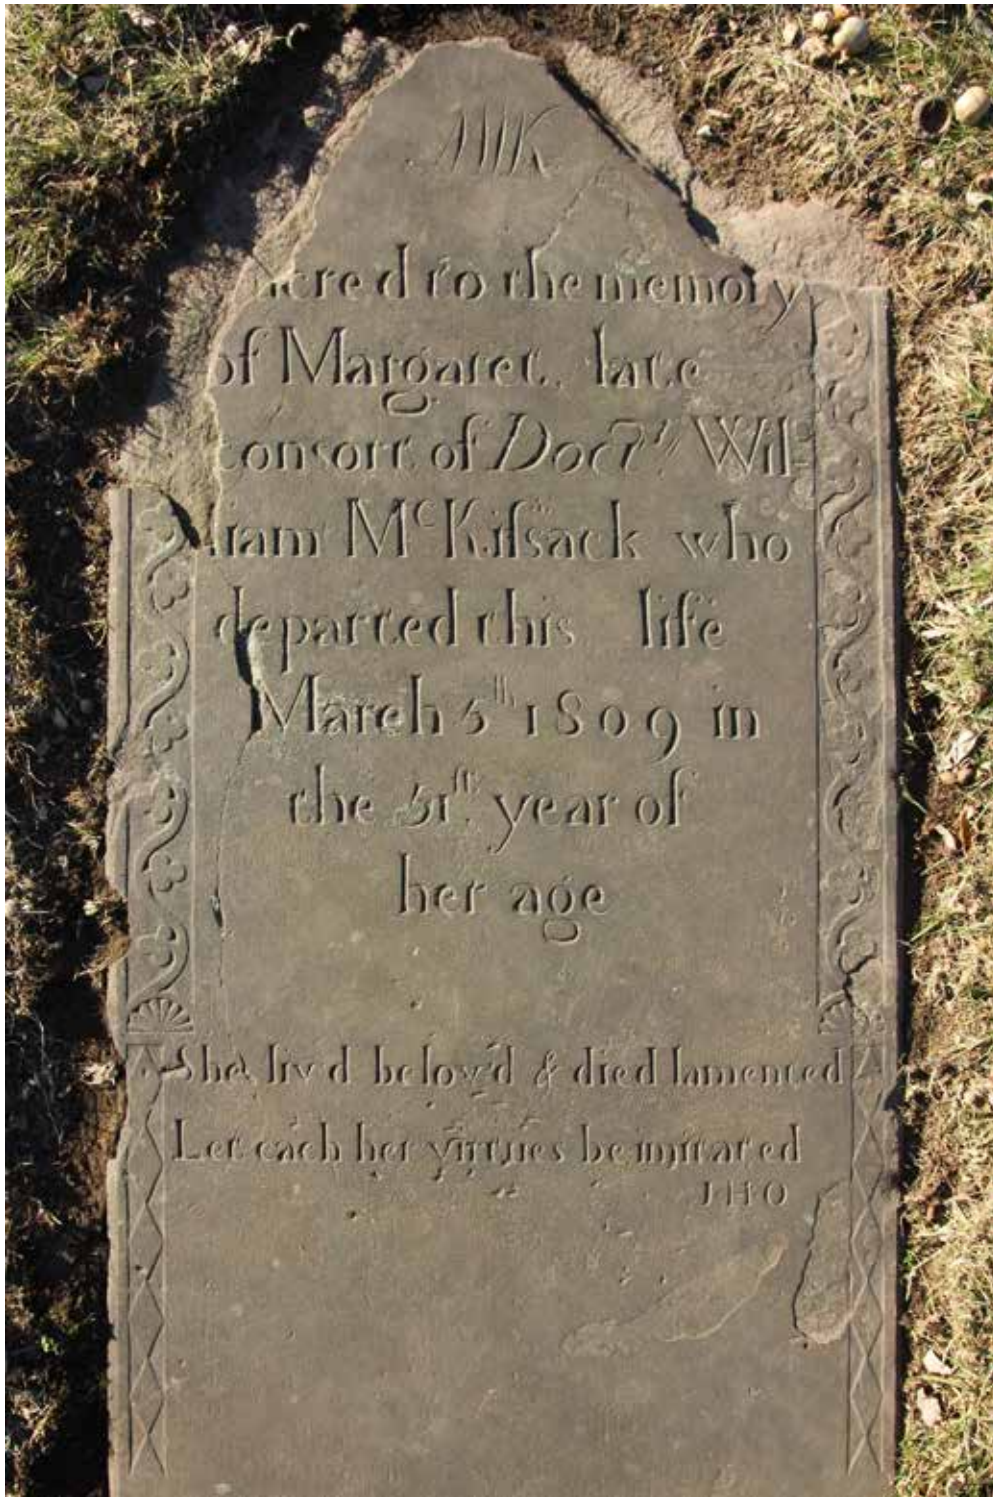 MK
acred to the memory
of Margaret, late
consort of Doctr. Wil-
liam McKifsack who
departed this life
March 5th 1809 in
the 51st. year of
her age
She liv'd belov'd & died lamented
Let each her virtues be imitated
JHO